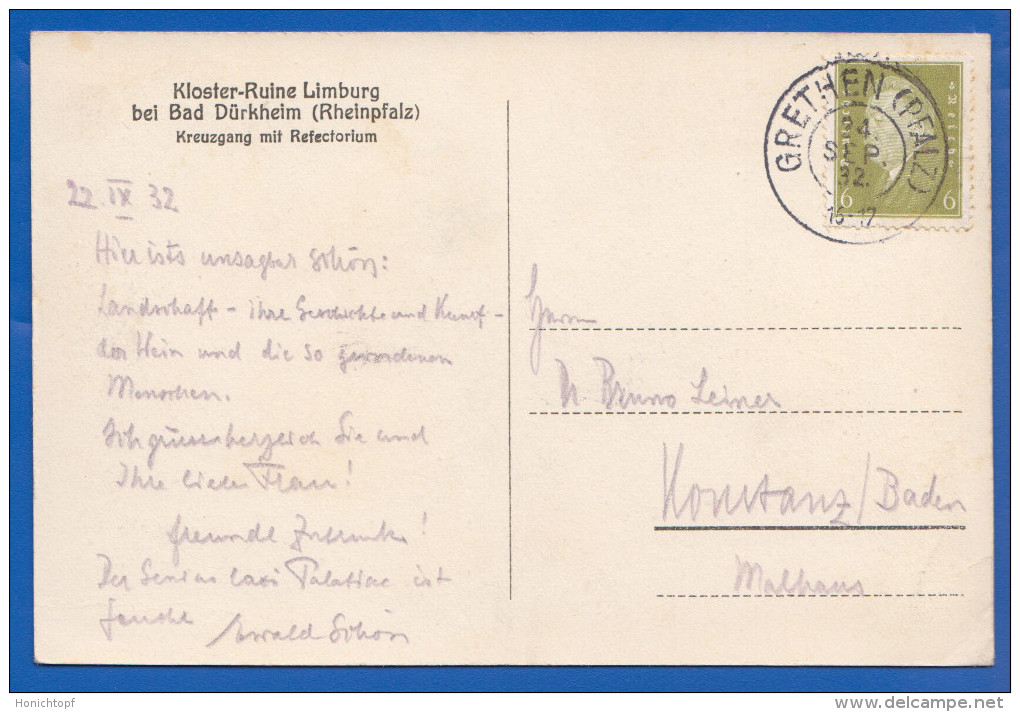 Kloster-Ruine Limburg
bei Bad Dürkheim (Rheinpfalz)
Kreuzgang mit Refectorium
GRETHEN (PFALZ)
24.
SEP.
32.
16-17
6 6
22. IX 32
Hier ists unsagbar schön:
Landschaft - ihre Geschichte und Kunst -
der Wein und die so gewordenen
Menschen.
Ich grüsse herzlich Sie und
Ihre liebe Frau!
Der Genius Palatinae ist
feucht Ewald Schön
Herrn
Dr. Bruno Leiner
Konstanz / Baden
Malhaus
Honichtopf
delcampe.net